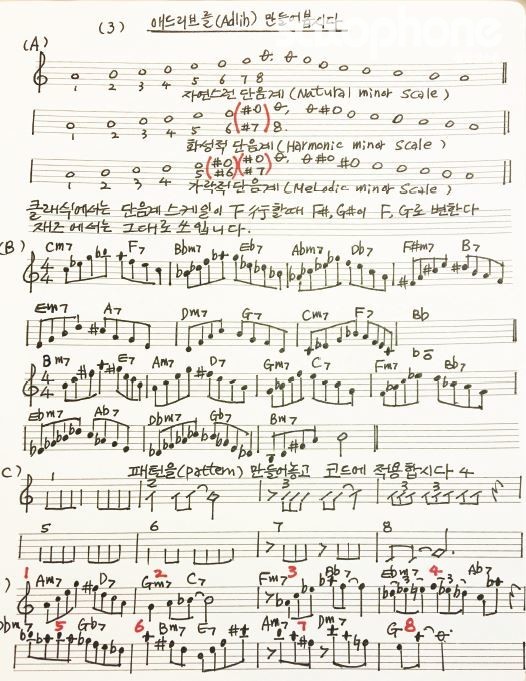 (3) 애드리브를(Adlib) 만들어봅시다
(A)
1 2 3 4 5 6 7 8
자연스런 단음계 (Natural minor Scale)
1 2 3 4 5 6 #7 8.
화성적 단음계 (Harmonic minor Scale)
1 2 3 4 5 #6 #7
가락적 단음계 (Melodic minor Scale)
클래식에서는 단음계 스케일이 下行할때 F#, G#이 F, G로 변한다
재즈에서는 그대로 쓰입니다.
(B) Cm7 F7 Bbm7 Eb7 Abm7 Db7 F#m7 B7
Em7 A7 Dm7 G7 Cm7 F7 Bb
Bm7 E7 Am7 D7 Gm7 C7 Fm7 Bb7
Ebm7 Ab7 Dbm7 Gb7 Bm7
C) 패턴을(pattern) 만들어놓고 코드에 적용합시다 4
2 3 3 3 3
5 6 7 8
1 2 3 4
Am7 D7 Gm7 C7 Fm7 Bb7 Ebm7 Ab7
5 6 7 8
Dbm7 Gb7 Bm7 E7 Am7 Dm7 G